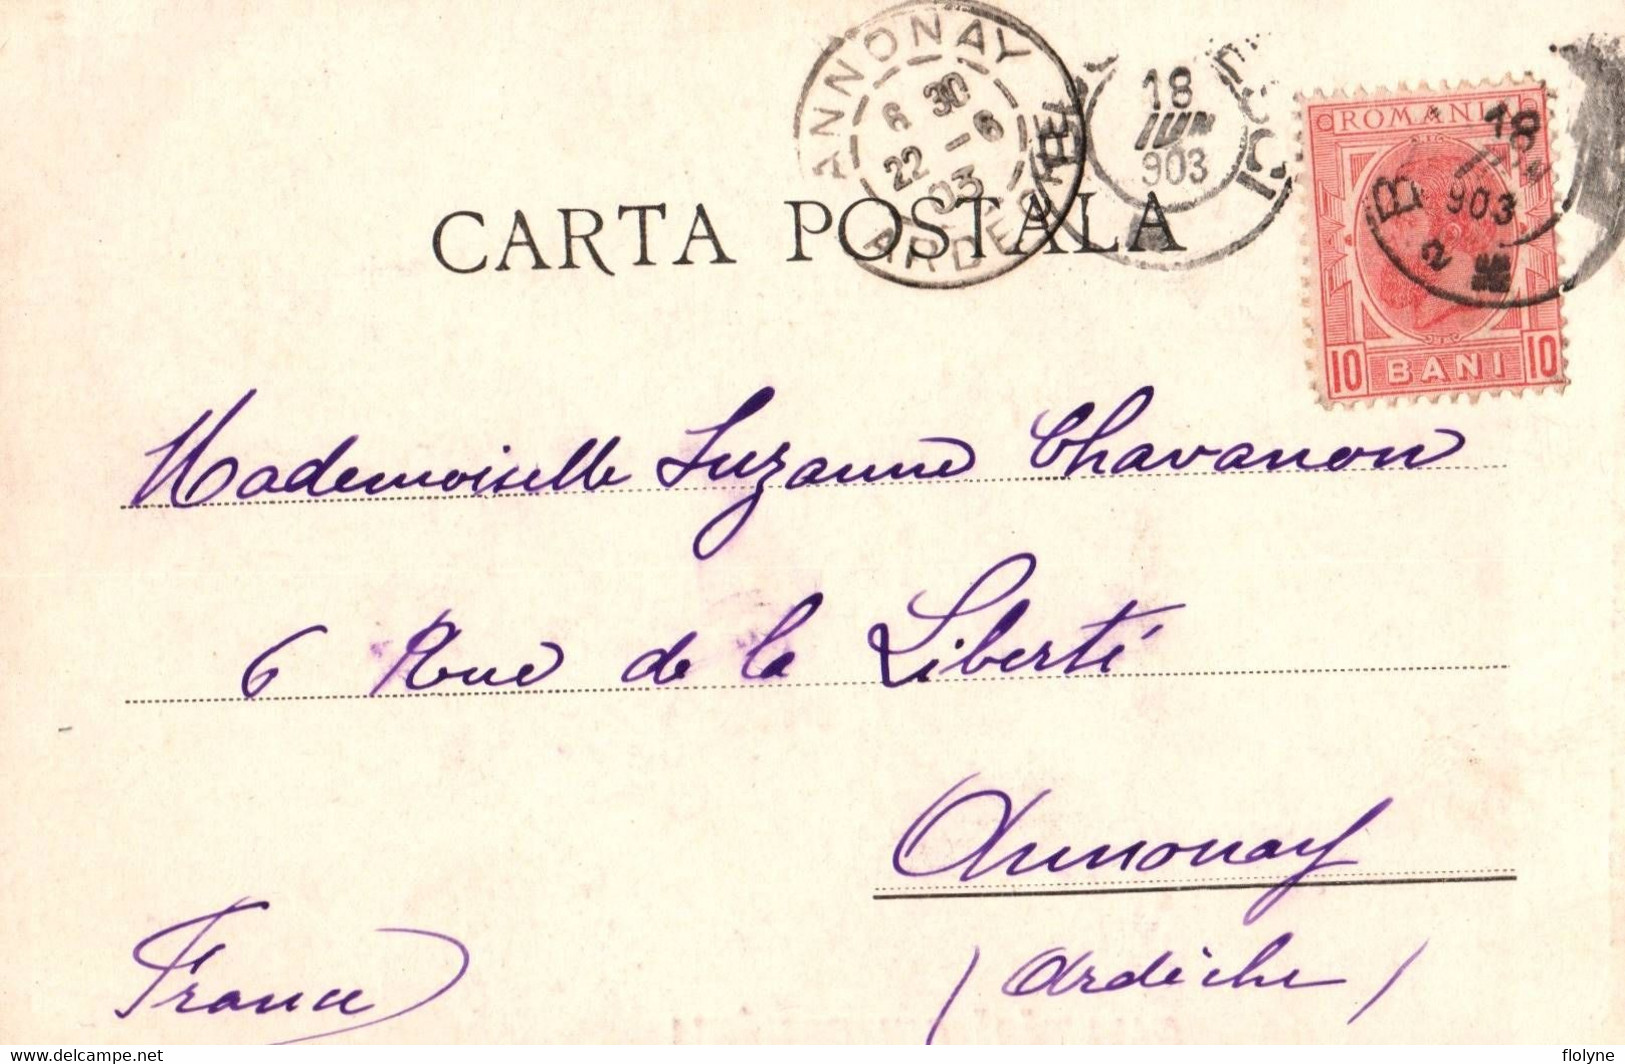 ANNONAY
6 30
22 - 6
03
ARDECHE
18
IUN
903
ROMANIA
18
903
10 BANI 10
CARTA POSTALA
Mademoiselle Suzanne Chavanon
6 Rue de la Liberté
Annonay
(Ardèche)
France
www.delcampe.net
flolyne